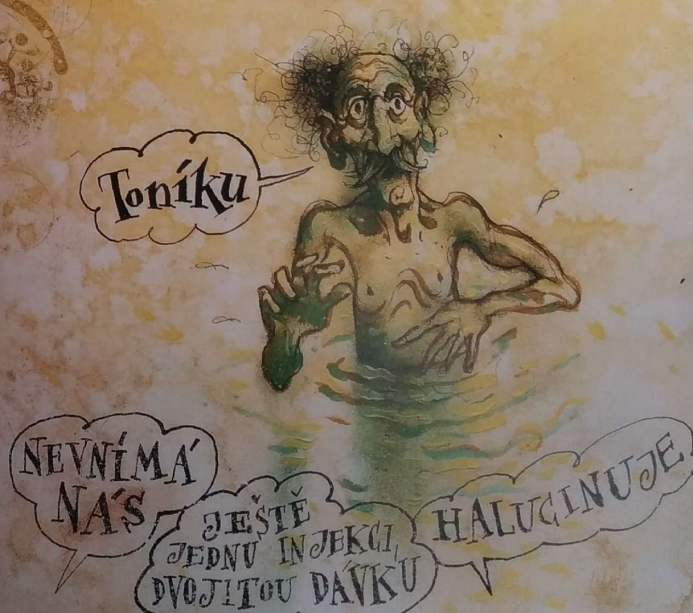 Toníku
NEVNÍMÁ
NÁS
JEŠTĚ
JEDNU INJEKCI,
DVOJITOU DÁVKU
HALUCINUJE